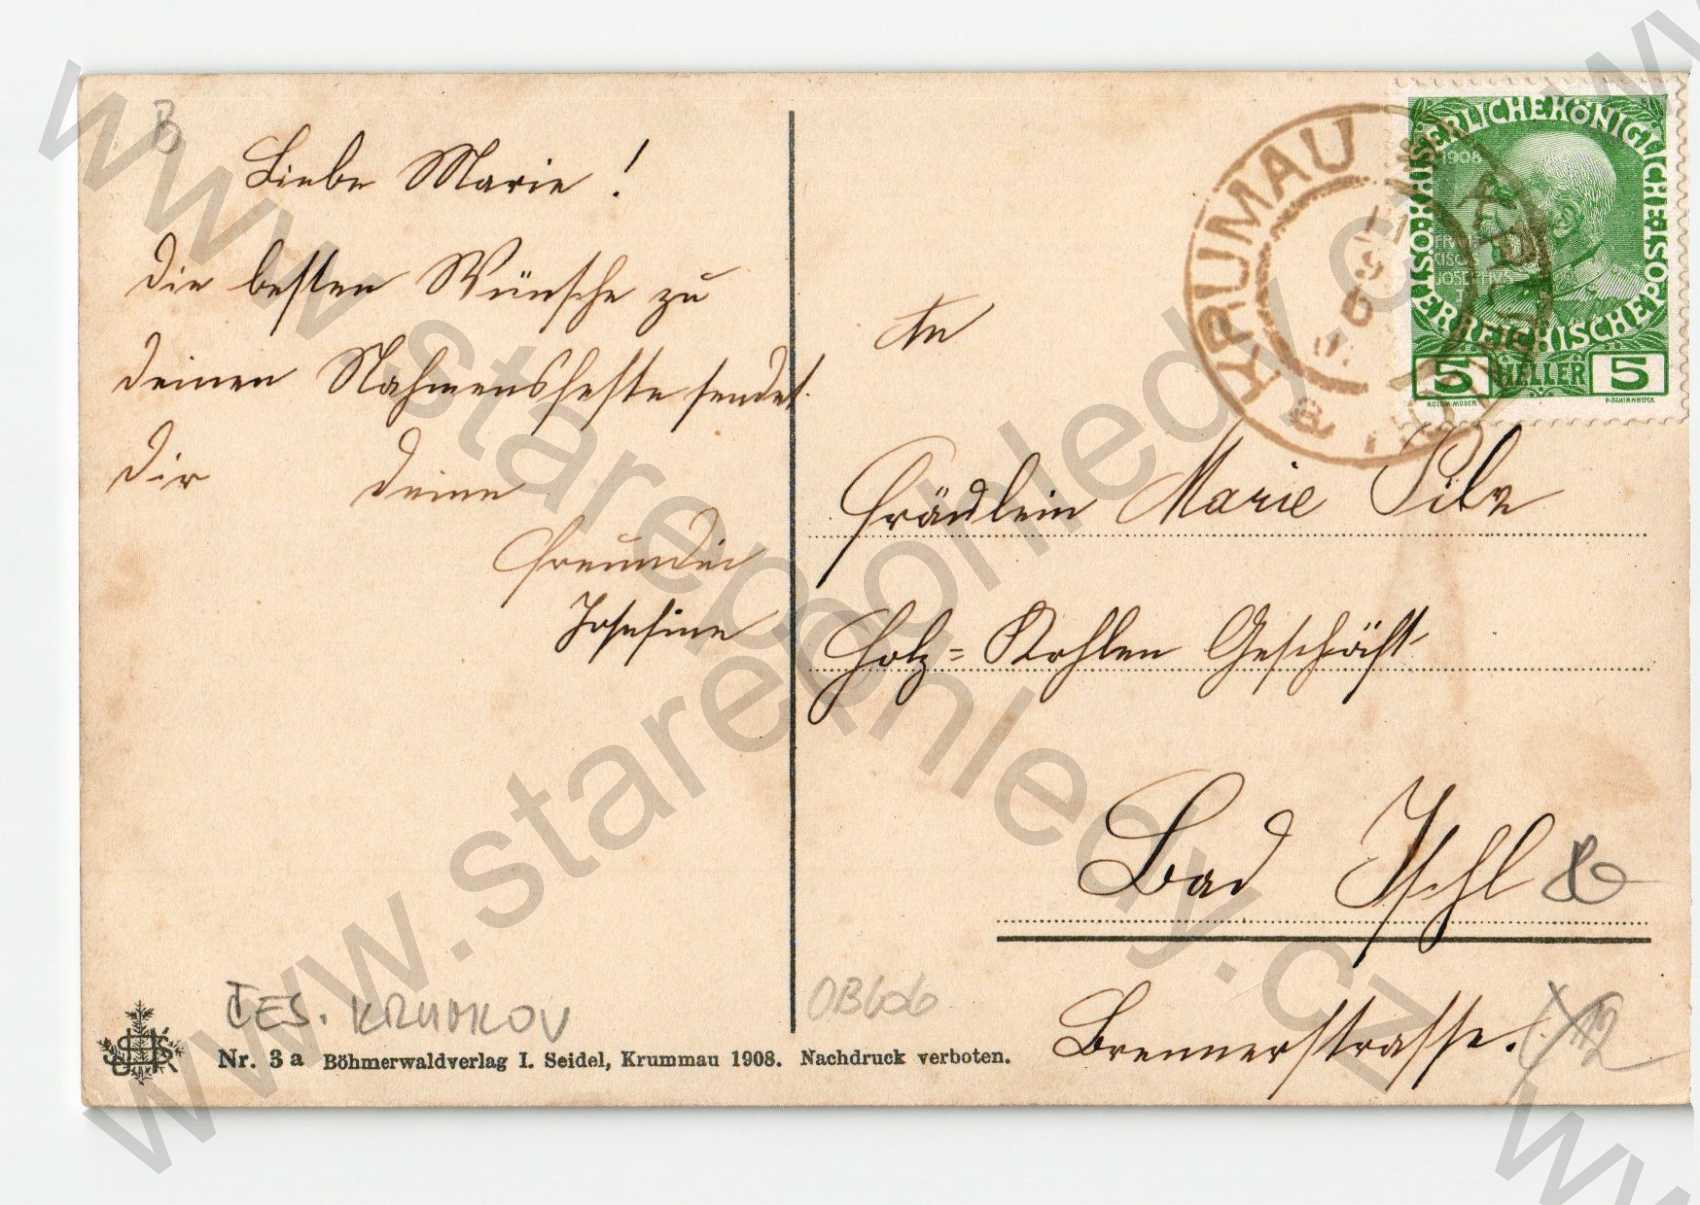 B
Liebe Marie !
die besten Wünsche zu
deinen Nahmensfeste sendet
dir deine
Freundin
Josefine
ČES. KRUMLOV
Nr. 3 a Böhmerwaldverlag I. Seidel, Krummau 1908. Nachdruck verboten.
KRUMAU
KAISERLICHE KÖNIGLICHE ÖSTERREICHISCHE POST
1908
5 HELLER 5
An
Fräulein Marie
Holz= Kohlen Geschäft
Bad Ischl
Brennerstrasse.
OB606
www.starepohledy.cz
www.starepohledy.cz